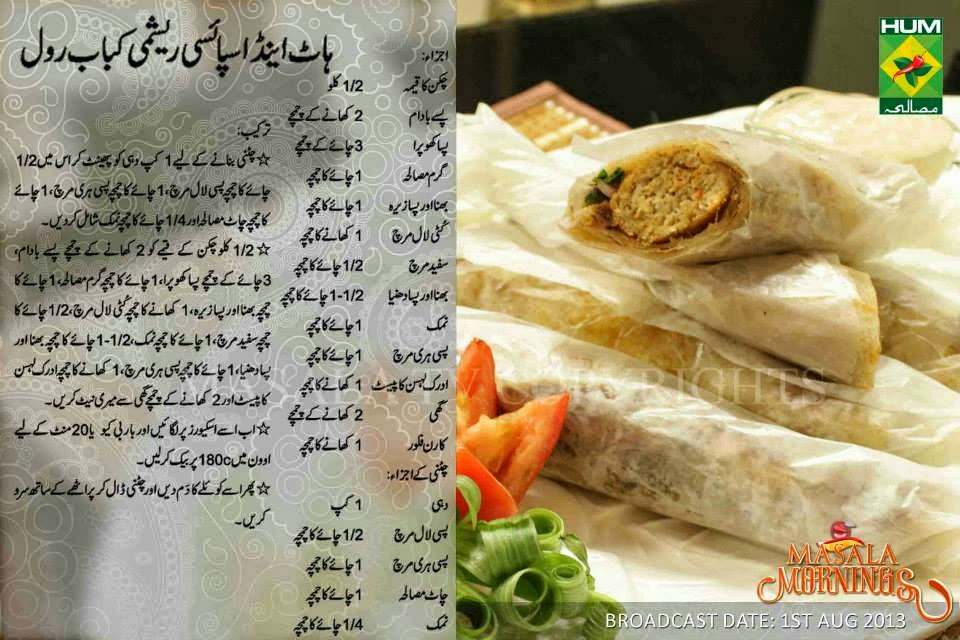 ہاٹ اینڈ اسپائسی ریشمی کباب رول
اجزاء:
چکن کا قیمہ 1/2 کلو
پسے بادام 2 کھانے کے چمچے
پسا کھوپرا 3 چائے کے چمچے
گرم مصالحہ 1 چائے کا چمچہ
بھنا اور پسا زیرہ 1 چائے کا چمچہ
کٹی لال مرچ 1 کھانے کا چمچہ
سفید مرچ 1/2 چائے کا چمچہ
بھنا اور پسا دھنیا 1-1/2 چائے کا چمچہ
نمک 1 چائے کا چمچہ
پسی ہری مرچ 1 چائے کا چمچہ
ادرک لہسن کا پیسٹ 1 کھانے کا چمچہ
گھی 2 کھانے کے چمچے
کارن فلور 1 کھانے کا چمچہ
چٹنی کے اجزاء:
دہی 1 کپ
پسی لال مرچ 1/2 چائے کا چمچہ
پسی ہری مرچ 1 چائے کا چمچہ
چاٹ مصالحہ 1 چائے کا چمچہ
نمک 1/4 چائے کا چمچہ
ترکیب:
☆ چٹنی بنانے کے لیے 1 کپ دہی کو پھینٹ کر اس میں 1/2
چائے کا چمچہ پسی لال مرچ، 1 چائے کا چمچہ پسی ہری مرچ، 1 چائے
کا چمچہ چاٹ مصالحہ اور 1/4 چائے کا چمچہ نمک شامل کردیں۔
☆ 1/2 کلو چکن کے قیمے کو 2 کھانے کے چمچے پسے بادام،
3 چائے کے چمچے پسا کھوپرا، 1 چائے کا چمچہ گرم مصالحہ، 1 چائے کا
چمچہ بھنا اور پسا زیرہ، 1 کھانے کا چمچہ کٹی لال مرچ، 1/2 چائے کا
چمچہ سفید مرچ، 1 چائے کا چمچہ نمک، 1-1/2 چائے کا چمچہ بھنا اور
پسا دھنیا، 1 چائے کا چمچہ پسی ہری مرچ، 1 کھانے کا چمچہ ادرک لہسن
کا پیسٹ اور 2 کھانے کے چمچے گھی سے میری نیٹ کریں۔
☆ اب اسے اسکیورز پر لگائیں اور باربی کیو یا 20 منٹ کے لیے
اوون میں 180c پر بیک کرلیں۔
☆ پھر اسے کوئلے کا دَم دیں اور چٹنی ڈال کر پراٹھے کے ساتھ سرو
کریں۔
HUM
مصالحہ
MASALA
MORNINGS
BROADCAST DATE: 1ST AUG 2013